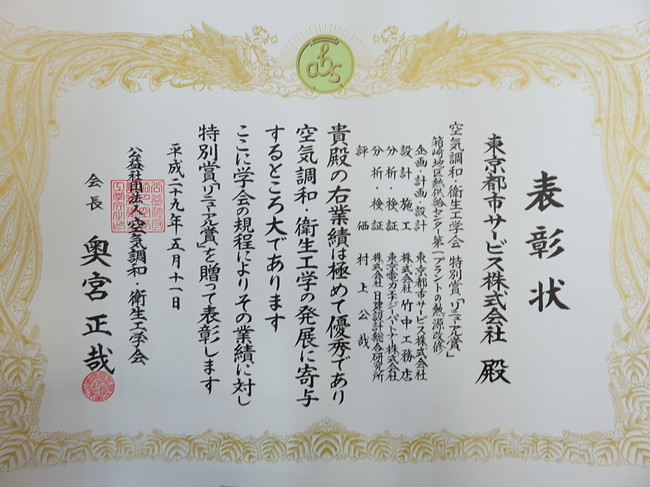 表彰状
東京都市サービス株式会社 殿
空気調和・衛生工学会 特別賞「リニューアル賞」
箱崎地区熱供給センター第一プラントの熱源改修
企画・計画・設計 東京都市サービス株式会社
設計施工 株式会社 竹中工務店
分析・検証 東電ガスエンパートナー株式会社
分析・検証 株式会社日建設計総合研究所
評価 村上公哉
貴殿の右業績は極めて優秀であり
空気調和・衛生工学の発展に寄与
するところ大であります
ここに学会の規程によりその業績に対し
特別賞「リニューアル賞」を贈って表彰します
平成二十九年五月十一日
公益社団法人 空気調和・衛生工学会
会長 奥宮正哉